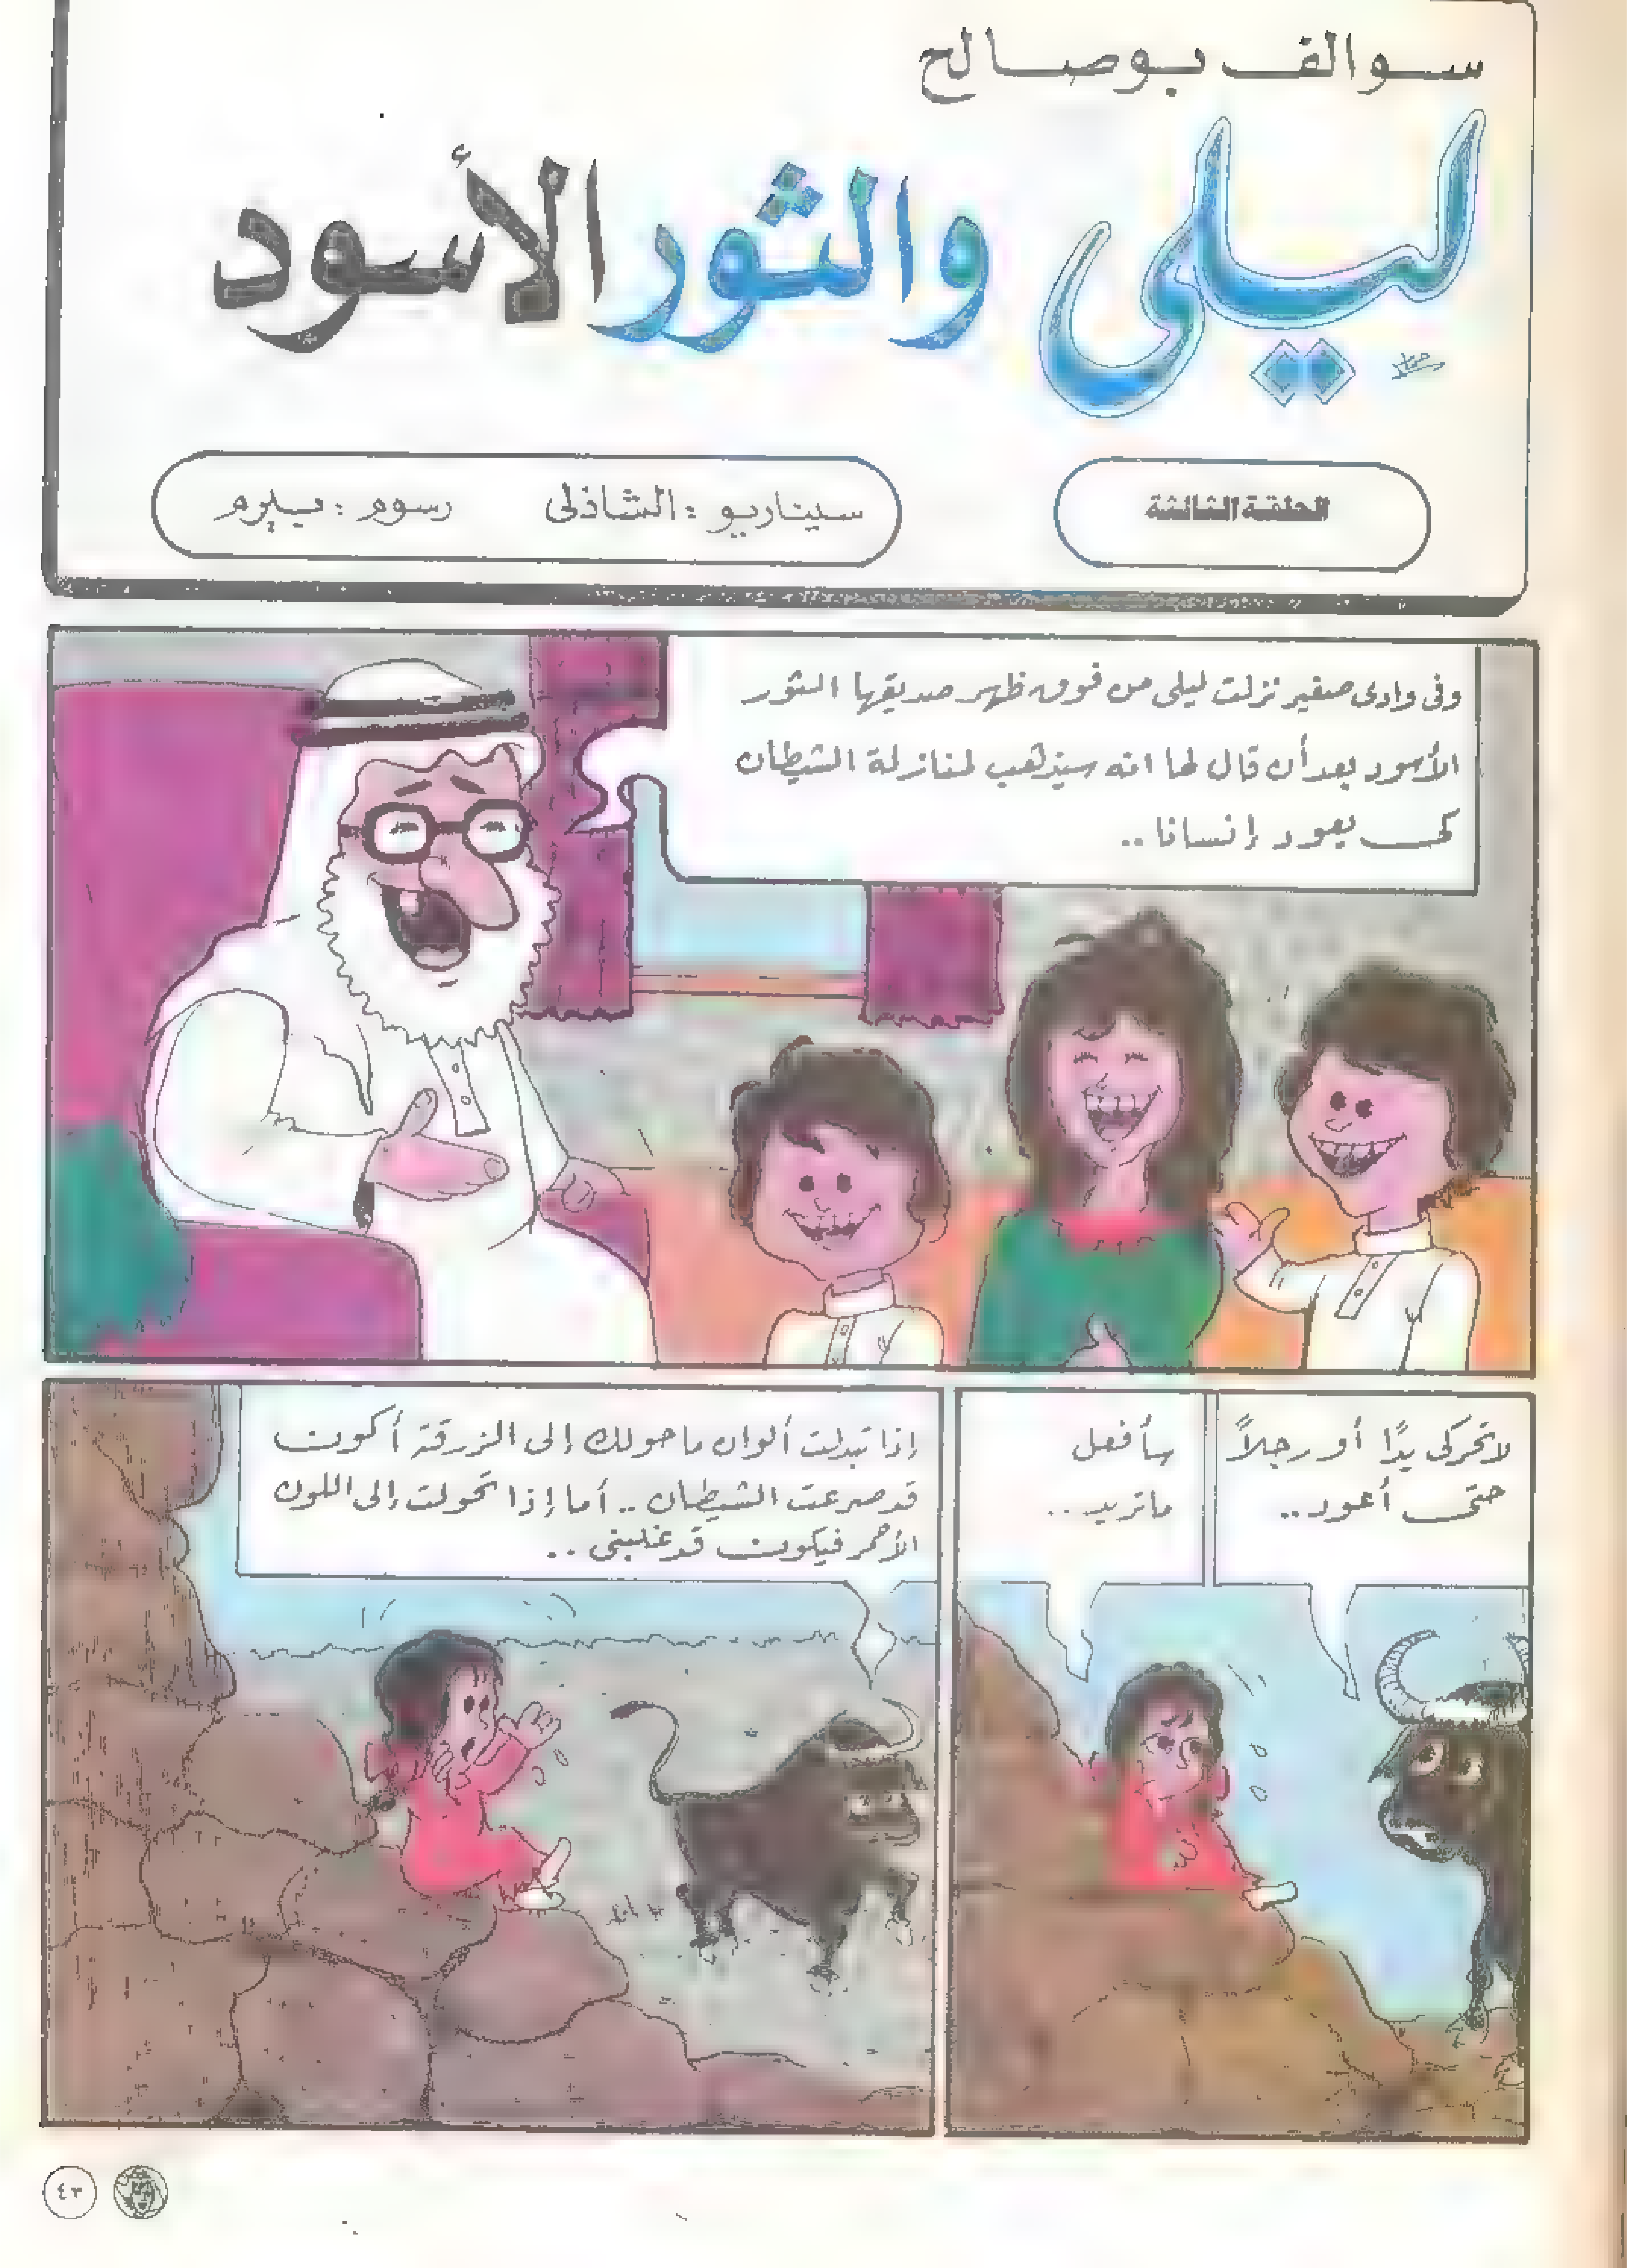 سوالف بوصالح
ليلى والثور الأسود
الحلقة الثالثة
سيناريو : الشاذلى
رسوم : بيرم
وفى وادى صغير نزلت ليلى من فوق ظهر صديقها الثور
الأسود بعد أن قال لها انه سيذهب لمنازلة الشيطان
كى يعود إنسانا ..
لا تحركى يدًا أو رجلاً
حتى أعود ..
سأفعل
ماتريد ..
إذا تبدلت ألوان ماحولك إلى الزرقة أكون
قد صرعت الشيطان .. أما إذا تحولت إلى اللون
الأحمر فيكون قد غلبنى ..
٤٣